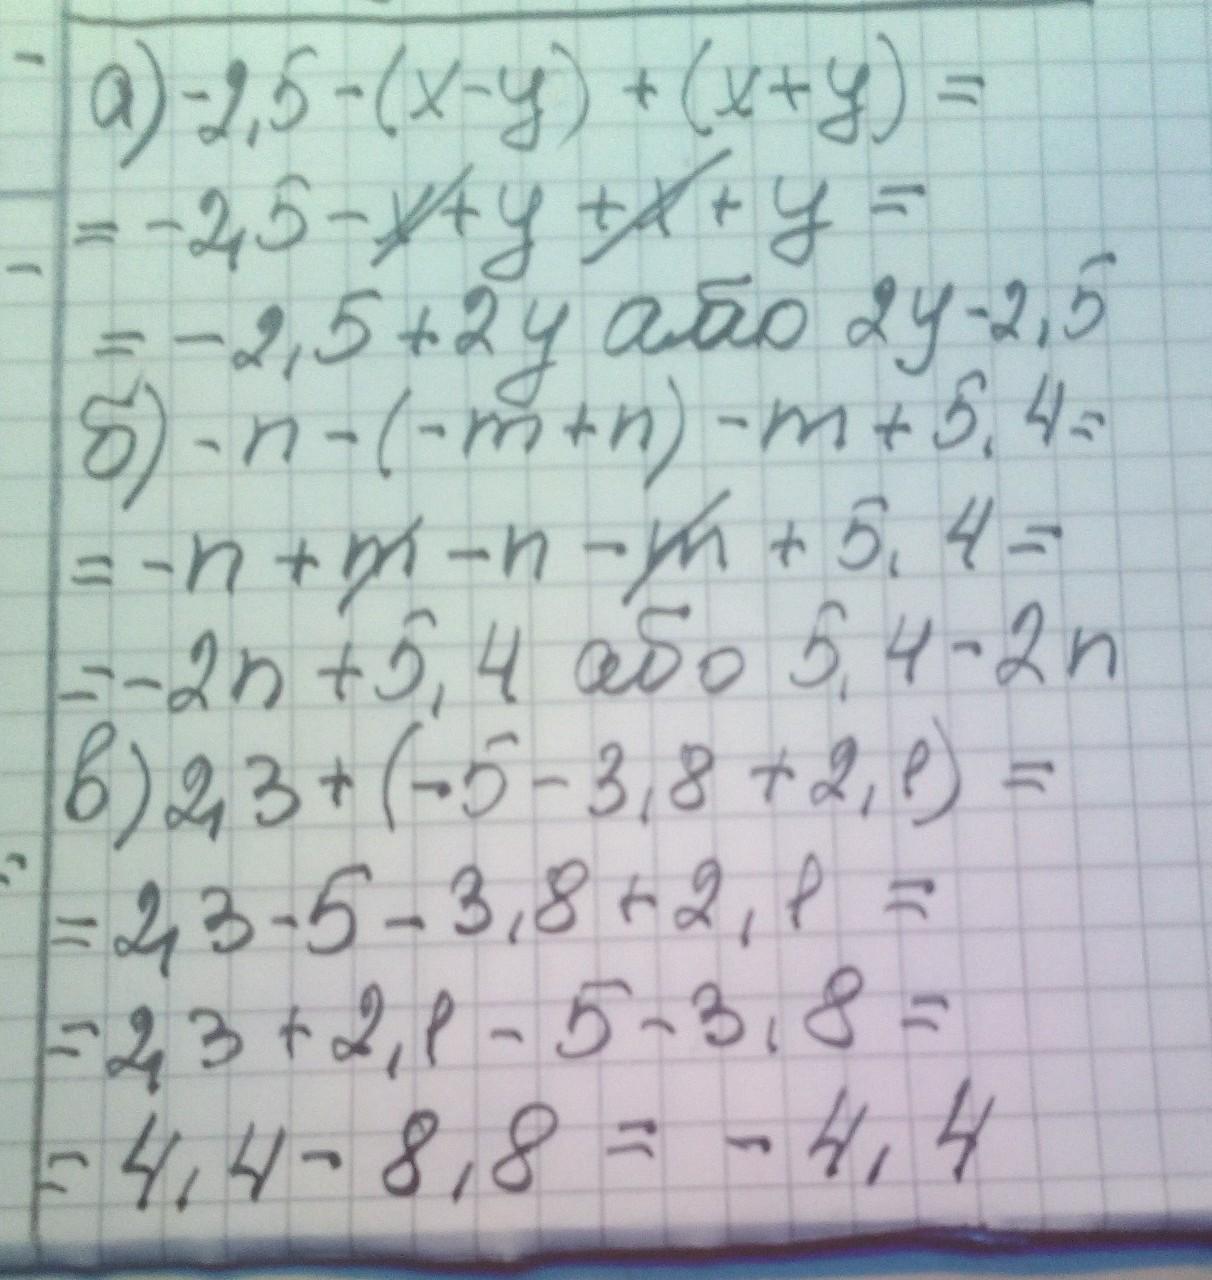 а) -2,5 - (x - y) + (x + y) =
= -2,5 - x + y + x + y =
= -2,5 + 2y або 2y - 2,5
б) -n - (-m + n) - m + 5,4 =
= -n + m - n - m + 5,4 =
= -2n + 5,4 або 5,4 - 2n
в) 2,3 + (-5 - 3,8 + 2,1) =
= 2,3 - 5 - 3,8 + 2,1 =
= 2,3 + 2,1 - 5 - 3,8 =
= 4,4 - 8,8 = -4,4